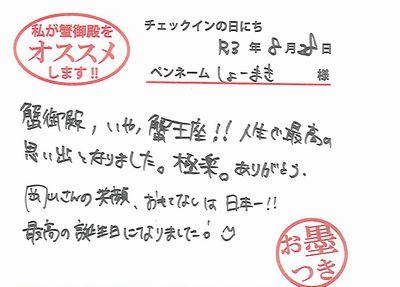 私が蟹御殿を
オススメ
します!!
チェックインの日にち
R3 年 8 月 28 日
ペンネーム しょーまき 様
蟹御殿,いや,蟹王座!! 人生で最高の
思い出となりました。極楽。ありがとう。
岡山さんの笑顔、おもてなしは日本一!!
最高の誕生日になりました!
お墨
つき